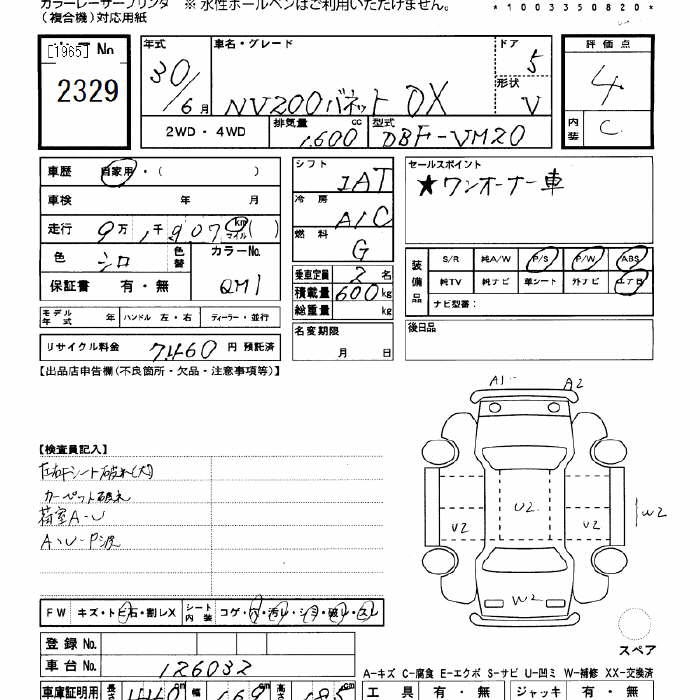 カラーレーザープリンタ ※ 水性ボールペンはご利用いただけません。
(複合機)対応用紙
*1003350820*
[1965] No
2329
年式
30/6月
車名・グレード
NV200バネット DX
ドア
5
形状
V
評価点
4
内装
C
2WD・4WD
排気量
1,600 cc
型式
DBF-VM20
車歴 自家用・( )
車検 年 月
走行 9万1千907 km マイル ( )
色 シロ 色替
カラーNo.
QM1
保証書 有・無
シフト
IAT
冷房
A/C
燃料
G
乗車定員 2名
積載量 600kg
総重量 kg
名変期限
月 日
セールスポイント
★ワンオーナー車
装備品
S/R 純A/W P/S P/W ABS
純TV 純ナビ 革シート 外ナビ エアB
ナビ型番:
後日品
モデル年式 年 ハンドル 左・右 ディーラー・並行
リサイクル料金 7,460 円 預託済
【出品店申告欄(不良箇所・欠品・注意事項等)】
A1 A2
【検査員記入】
カーペット破れ
荷室A-U
U2
U2
U2
W2
W2
スペア
FW キズ・トビ石・割レX シート内装 コゲ・穴・汚レ・シミ・破レ・スレ
登録No.
車台No. 126032
A-キズ C-腐食 E-エクボ S-サビ U-凹ミ W-補修 XX-交換済
車庫証明用 長さ 440 cm 幅 169 cm 高さ 185 cm
工具 有・無 ジャッキ 有・無